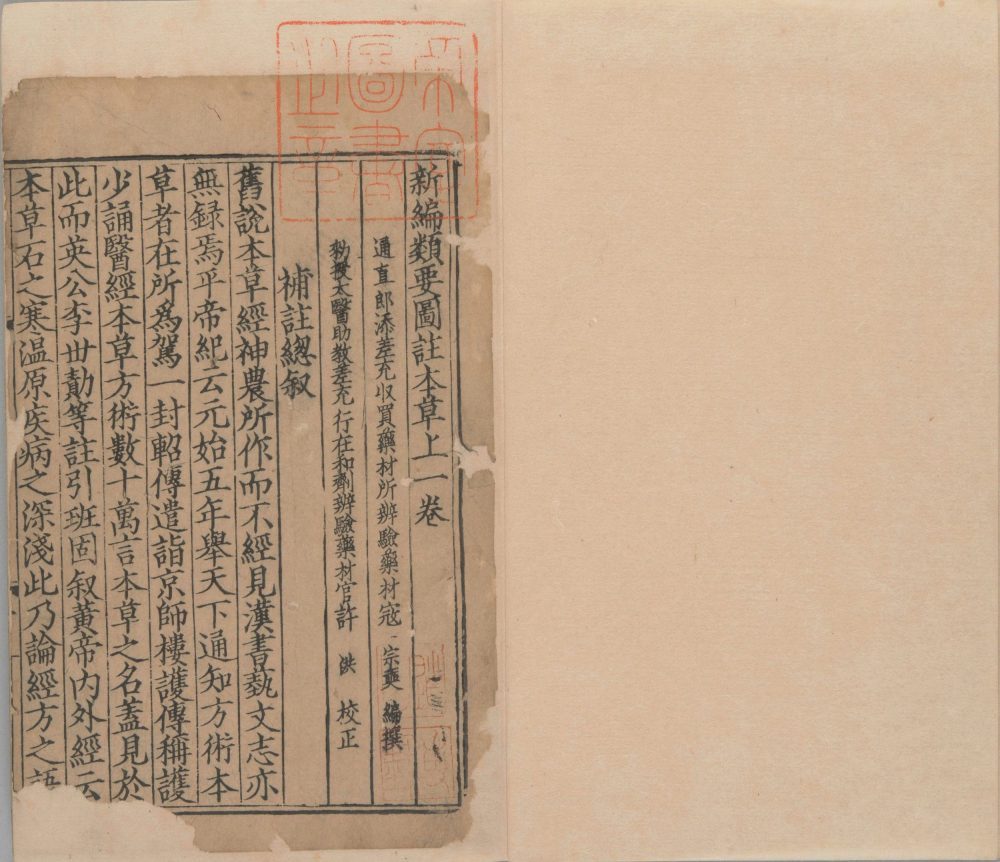 新編類要圖註本草上一卷
通直郎添差充收買藥材所辨驗藥材寇 宗奭 編撰
勑授太醫助教差充行在和劑辨驗藥材官許 洪 校正
補註緫叙
舊說本草經神農所作而不經見漢書藝文志亦
無録焉平帝紀云元始五年舉天下通知方術本
草者在所爲駕一封軺傳遣詣京師樓護傳稱護
少誦醫經本草方術數十萬言本草之名蓋見於
此而英公李世勣等註引班固叙黃帝内外經云
本草石之寒温原疾病之深淺此乃論經方之語
圖書